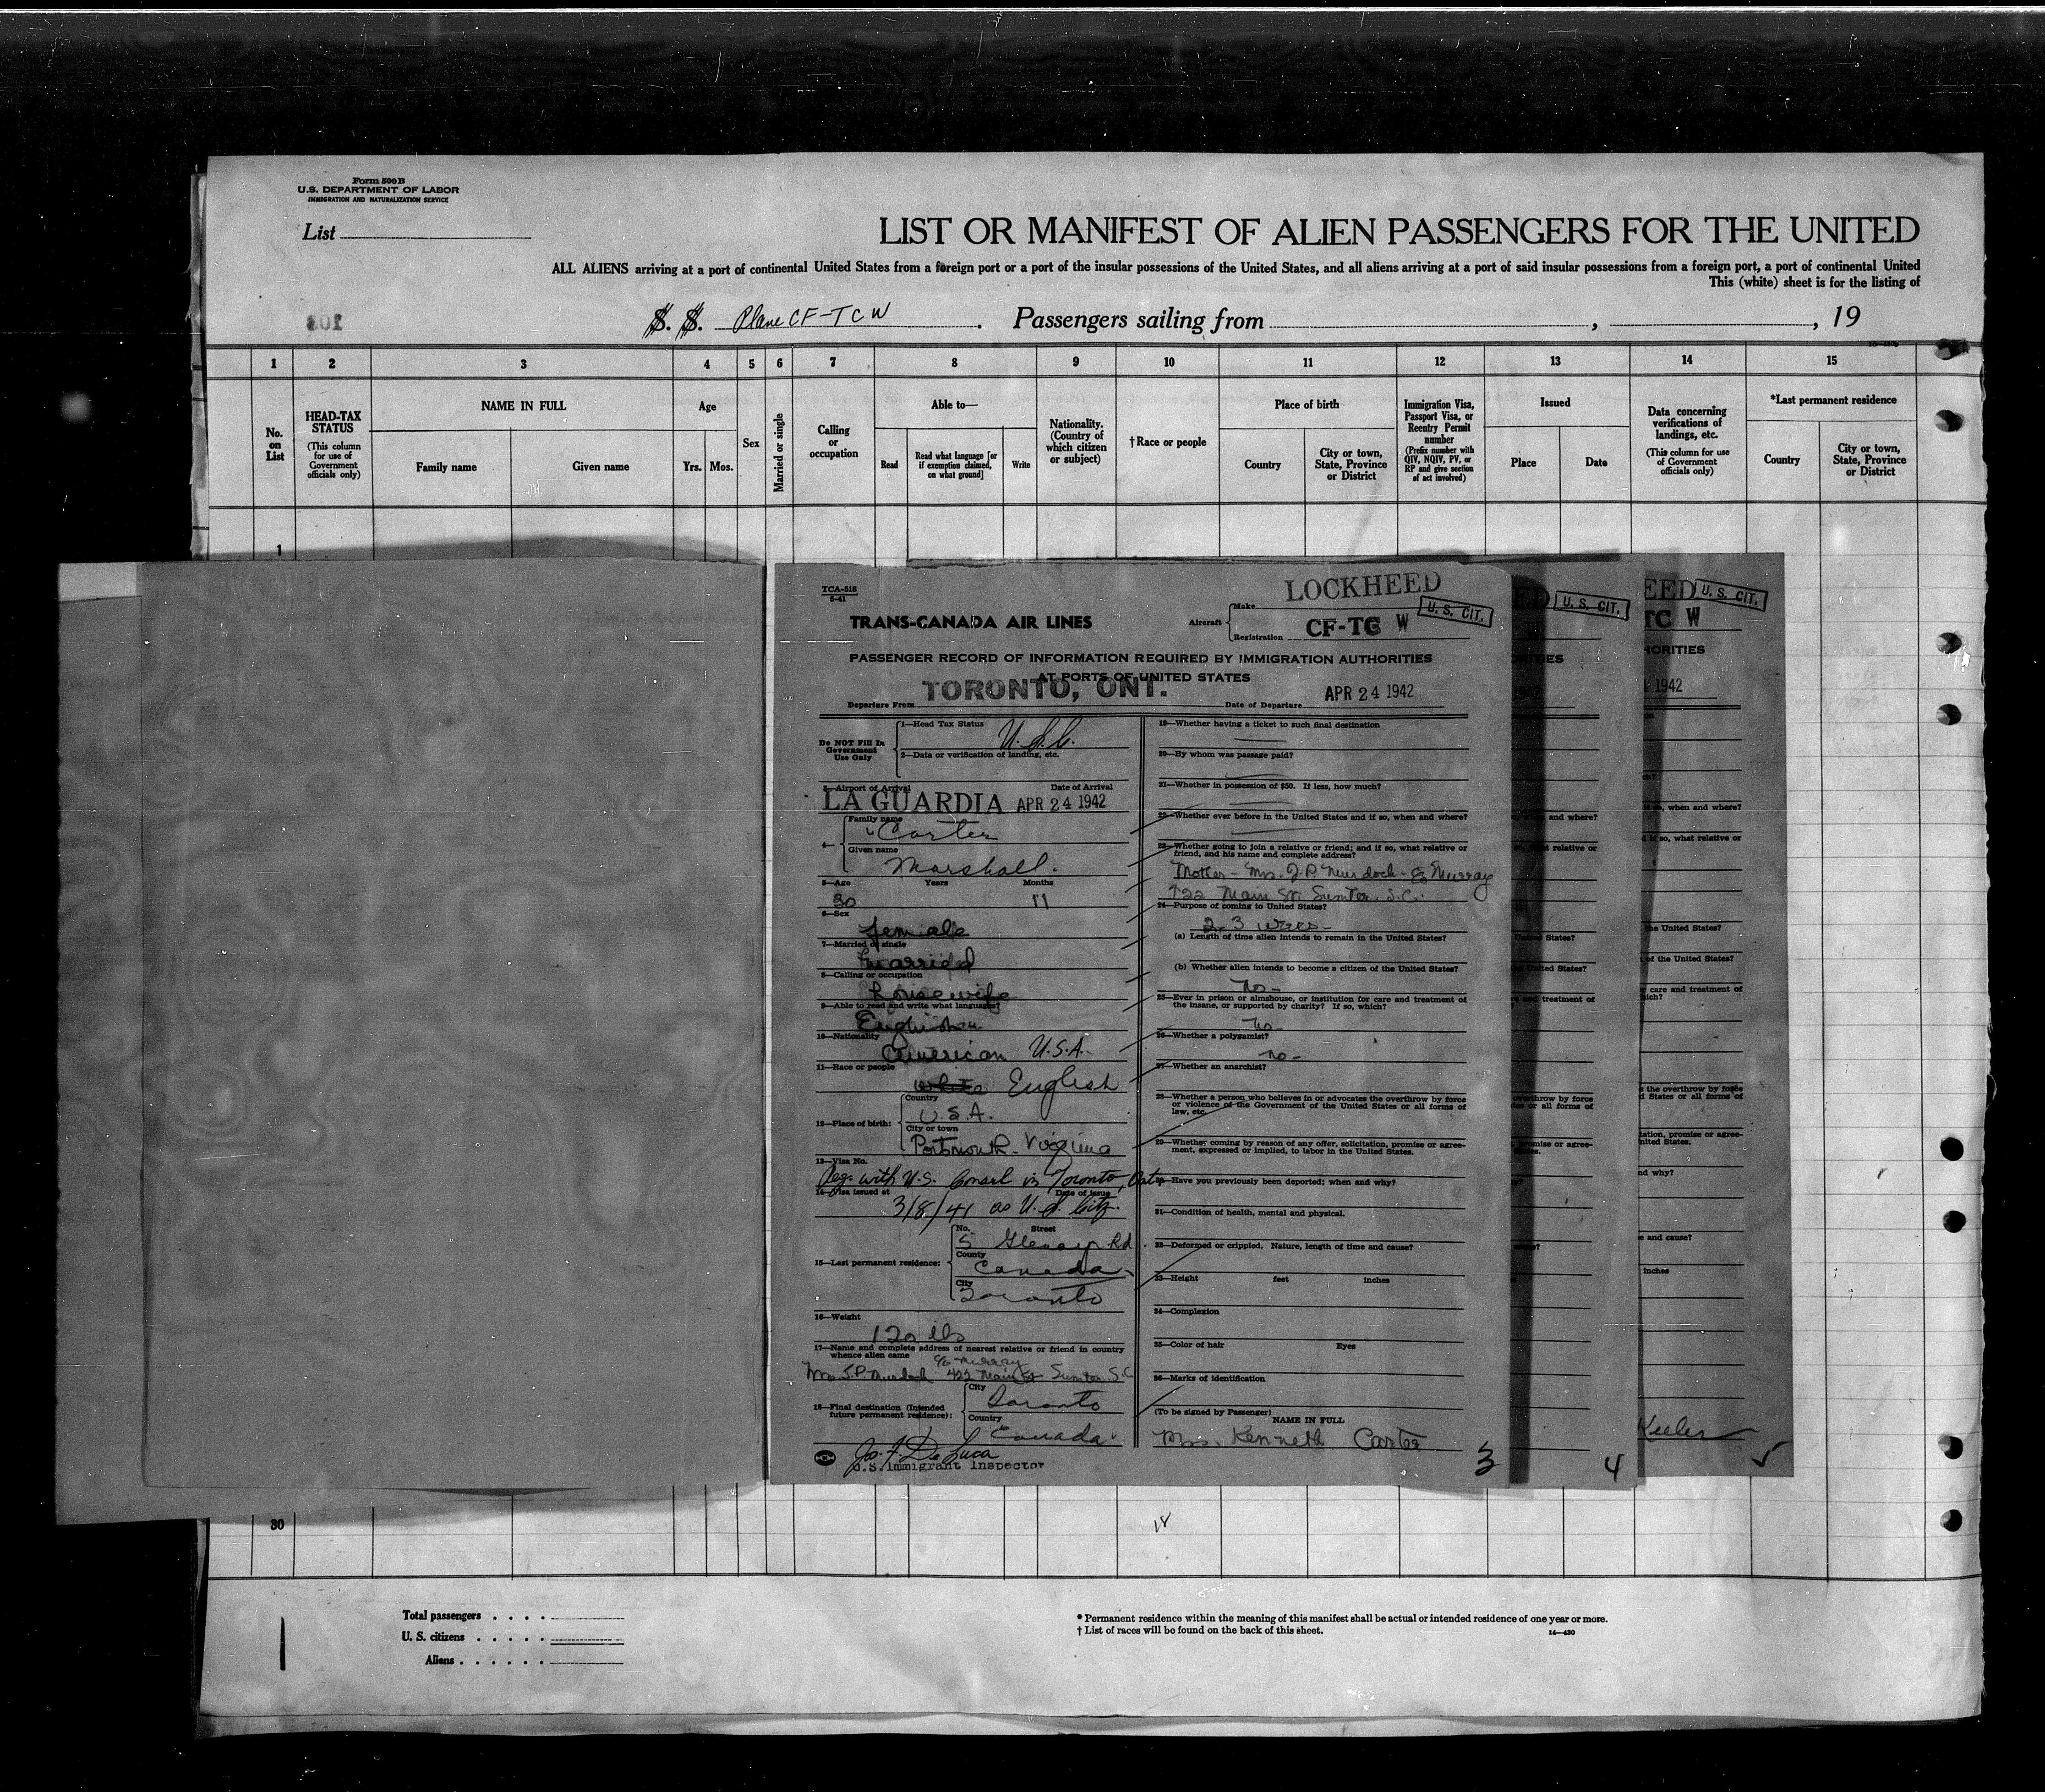 Form 500B
U.S. DEPARTMENT OF LABOR
IMMIGRATION AND NATURALIZATION SERVICE
List
LIST OR MANIFEST OF ALIEN PASSENGERS FOR THE UNITED
ALL ALIENS arriving at a port of continental United States from a foreign port or a port of the insular possessions of the United States, and all aliens arriving at a port of said insular possessions from a foreign port, a port of continental United
This (white) sheet is for the listing of
S. S. Plane CF-TCW . Passengers sailing from , , 19
1 2 3 4 5 6 7 8 9 10 11 12 13 14 15
No. on List
HEAD-TAX STATUS
(This column for use of Government officials only)
NAME IN FULL
Family name
Given name
Age
Yrs. Mos.
Sex
Married or single
Calling or occupation
Able to—
Read
Read what language [or if exemption claimed, on what ground]
Write
Nationality. (Country of which citizen or subject)
†Race or people
Place of birth
Country
City or town, State, Province or District
Immigration Visa, Passport Visa, or Reentry Permit number
(Prefix number with QIV, NQIV, PV, or RP and give section of act involved)
Issued
Place
Date
Data concerning verifications of landings, etc.
(This column for use of Government officials only)
*Last permanent residence
Country
City or town, State, Province or District
1
TCA-518
5-41
TRANS-CANADA AIR LINES
Aircraft
Make LOCKHEED
Registration CF-TC W
U. S. CIT.
PASSENGER RECORD OF INFORMATION REQUIRED BY IMMIGRATION AUTHORITIES
AT PORTS OF UNITED STATES
Departure From TORONTO, ONT.
Date of Departure APR 24 1942
Do NOT Fill In Government Use Only
1—Head Tax Status U.S.C.
2—Data or verification of landing, etc.
3—Airport of Arrival Date of Arrival
LA GUARDIA APR 24 1942
4—
Family name
Carter
Given name
Marshall.
5—Age Years Months
30 11
6—Sex
female
7—Married or single
married
8—Calling or occupation
housewife
9—Able to read and write what language?
English
10—Nationality
American U.S.A.
11—Race or people
white English
12—Place of birth:
Country
U.S.A.
City or town
Portsmouth - Virginia
13—Visa No.
Reg. with U.S. Consul in Toronto, Ont.
14—Visa issued at Date of issue
3/8/41 as U.S. Citz.
15—Last permanent residence:
No. Street
5 Rd.
County
Canada
City
Toronto
16—Weight
120 lbs
17—Name and complete address of nearest relative or friend in country
whence alien came
c/o Murray
Mrs J.P. Murdoch 422 Main St Sumter S.C
18—Final destination (Intended future permanent residence):
City
Toronto
Country
Canada.
Jos. F. De Luca
U.S. Immigrant Inspector
19—Whether having a ticket to such final destination
20—By whom was passage paid?
21—Whether in possession of $50. If less, how much?
22—Whether ever before in the United States and if so, when and where?
23—Whether going to join a relative or friend; and if so, what relative or
friend, and his name and complete address?
Mother - Mrs. J.P. Murdoch - c/o Murray
422 Main St. Sumter. S.C.
24—Purpose of coming to United States?
2-3 wks -
(a) Length of time alien intends to remain in the United States?
(b) Whether alien intends to become a citizen of the United States?
no -
25—Ever in prison or almshouse, or institution for care and treatment of
the insane, or supported by charity? If so, which?
no
26—Whether a polygamist?
no -
27—Whether an anarchist?
28—Whether a person who believes in or advocates the overthrow by force
or violence of the Government of the United States or all forms of
law, etc.
29—Whether coming by reason of any offer, solicitation, promise or agree-
ment, expressed or implied, to labor in the United States.
30—Have you previously been deported; when and why?
31—Condition of health, mental and physical.
32—Deformed or crippled. Nature, length of time and cause?
33—Height feet inches
34—Complexion
35—Color of hair Eyes
36—Marks of identification
(To be signed by Passenger)
NAME IN FULL
Mrs. Kenneth Carter
3
U. S. CIT.
4
EED
U. S. CIT.
TC W
HORITIES
1942
Keeler
30
18
Total passengers . . . .
U. S. citizens . . . . .
Aliens . . . . . .
* Permanent residence within the meaning of this manifest shall be actual or intended residence of one year or more.
† List of races will be found on the back of this sheet.
14—430